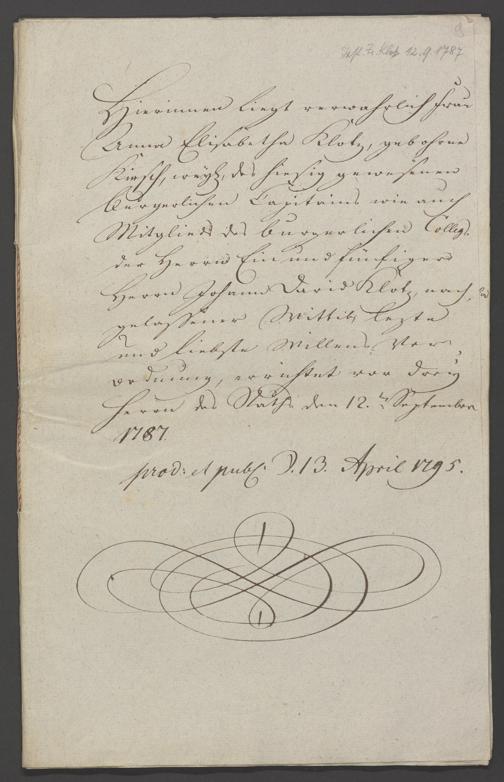 Test. Fr. Klotz 12.9.1787
Hierinnen liegt verwahrlich Frau
Anna Elisabetha Klotz, gebohrne
Kirsch, weyl. des hiesig gewesenen
bürgerlichen Capitains wie auch
Mitglieds des burgerlichen Collegs.
der Herrn Ein und fünfziger
Herrn Johann David Klotz, nach,
gelassener Wittib, lezte
und liebste Willens, Ver-
ordnung, errichtet vor dreÿ
Herrn des Raths den 12.ten September
1787.
prod: et publ: D. 13. April 1795.